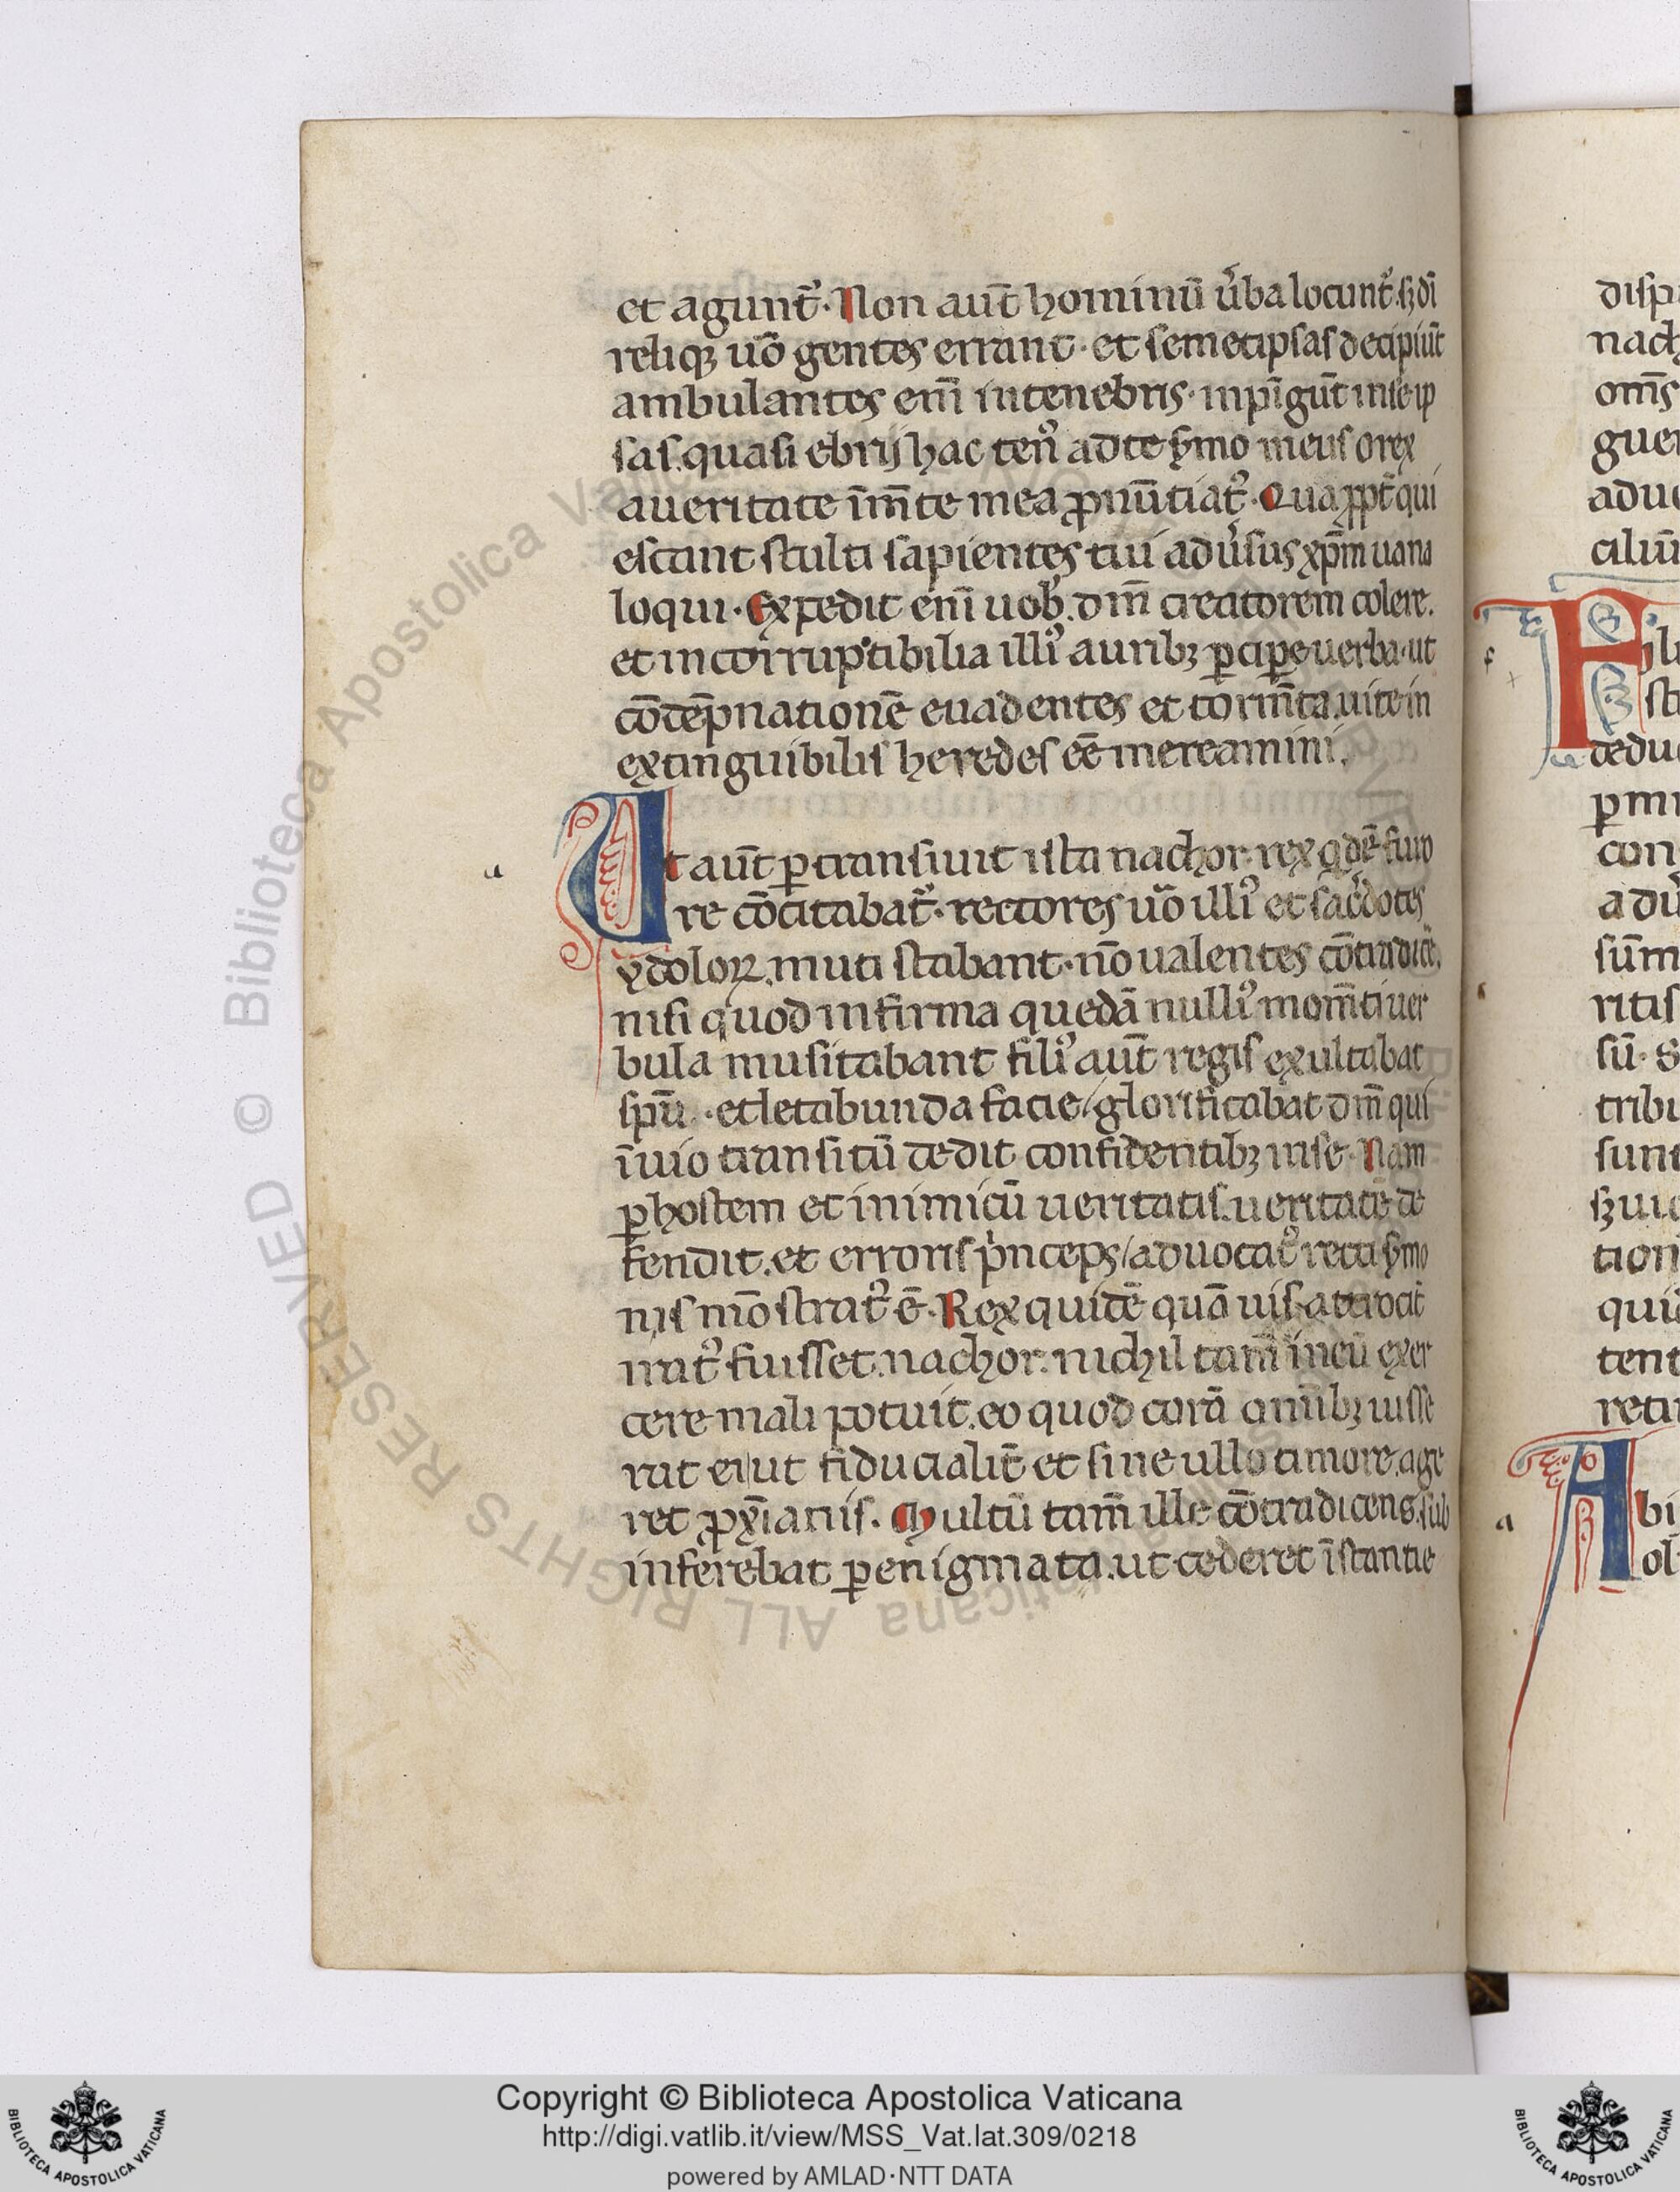 et agunt᷒. Non aut̄ hominū u̓ba locunt᷒. sꝫ dī
reliqꝫ uō gentes errant. et semetipsas decipiūt
ambulantes enī in tenebris. inpīgūt in se ip
sas. quasi ebrij hac ten᷒ ad te s̓mo meus o rex
a ueritate ī mīte mea ꝓnūtiat᷒. Qua ꝓpt̄ qui
escant stulti sapientes tui adu̓sus xp̄m uana
loqui. Expedit enī uob̓. dm̄ creatorem colere.
et incorruptibilia illi᷒ auribꝫ ꝑcipe uerba. ut
cōtēpnationē euadentes et torm̄ta. uite in
extinguibilis heredes eē mereamini.
a
Ut aut̄ ꝑtransiuit ista nachor. rex qͥdē furo
re cōcitabat᷒. rectores uō illi᷒ et sac̓dotes
ydoloꝝ. muti stabant. nō ualentes cōtradic̄e.
nisi quod infirma quedā nulli᷒ mom̄ti uer
bula musitabant fili᷒ aut̄ regis exultabat
sp̄u. et letabunda facie / glorificabat dm̄ qui
īuio transitū dedit confidentibꝫ in se. Nam
ꝑ hostem et inimicū ueritatis. ueritatē de
fendit. et erroris pͥnceps / aduocat᷒ recti s̓mo
nis mōstrat᷒ ē. Rex quidē quā uis
nat᷒ fuisset. nachor. nichil tam̄ in eū exer
cere mali potuit. eo quod corā omībꝫ iusse
rat ei / ut fiducialit̄ et sine ullo timore. age
ret ꝓ xp̄ianis. Multū tam̄ ille cōtradicens. sub
inferebat ꝑ enigmata. ut cederet īstantie
disp
nach
om̄s
guer
adue
ciliū
f
Fili
sti
dedu
ꝑmi
con
adu̓
sūm
ritis
sū. S
tribu
sunt
sꝫ
tion
quid
tent
reti
a
Abi
ol
© Biblioteca Apostolica Vaticana ALL RIGHTS RESERVED
Copyright © Biblioteca Apostolica Vaticana
http://digi.vatlib.it/view/MSS_Vat.lat.309/0218
powered by AMLAD·NTT DATA
BIBLIOTECA APOSTOLICA VATICANA
BIBLIOTECA APOSTOLICA VATICANA